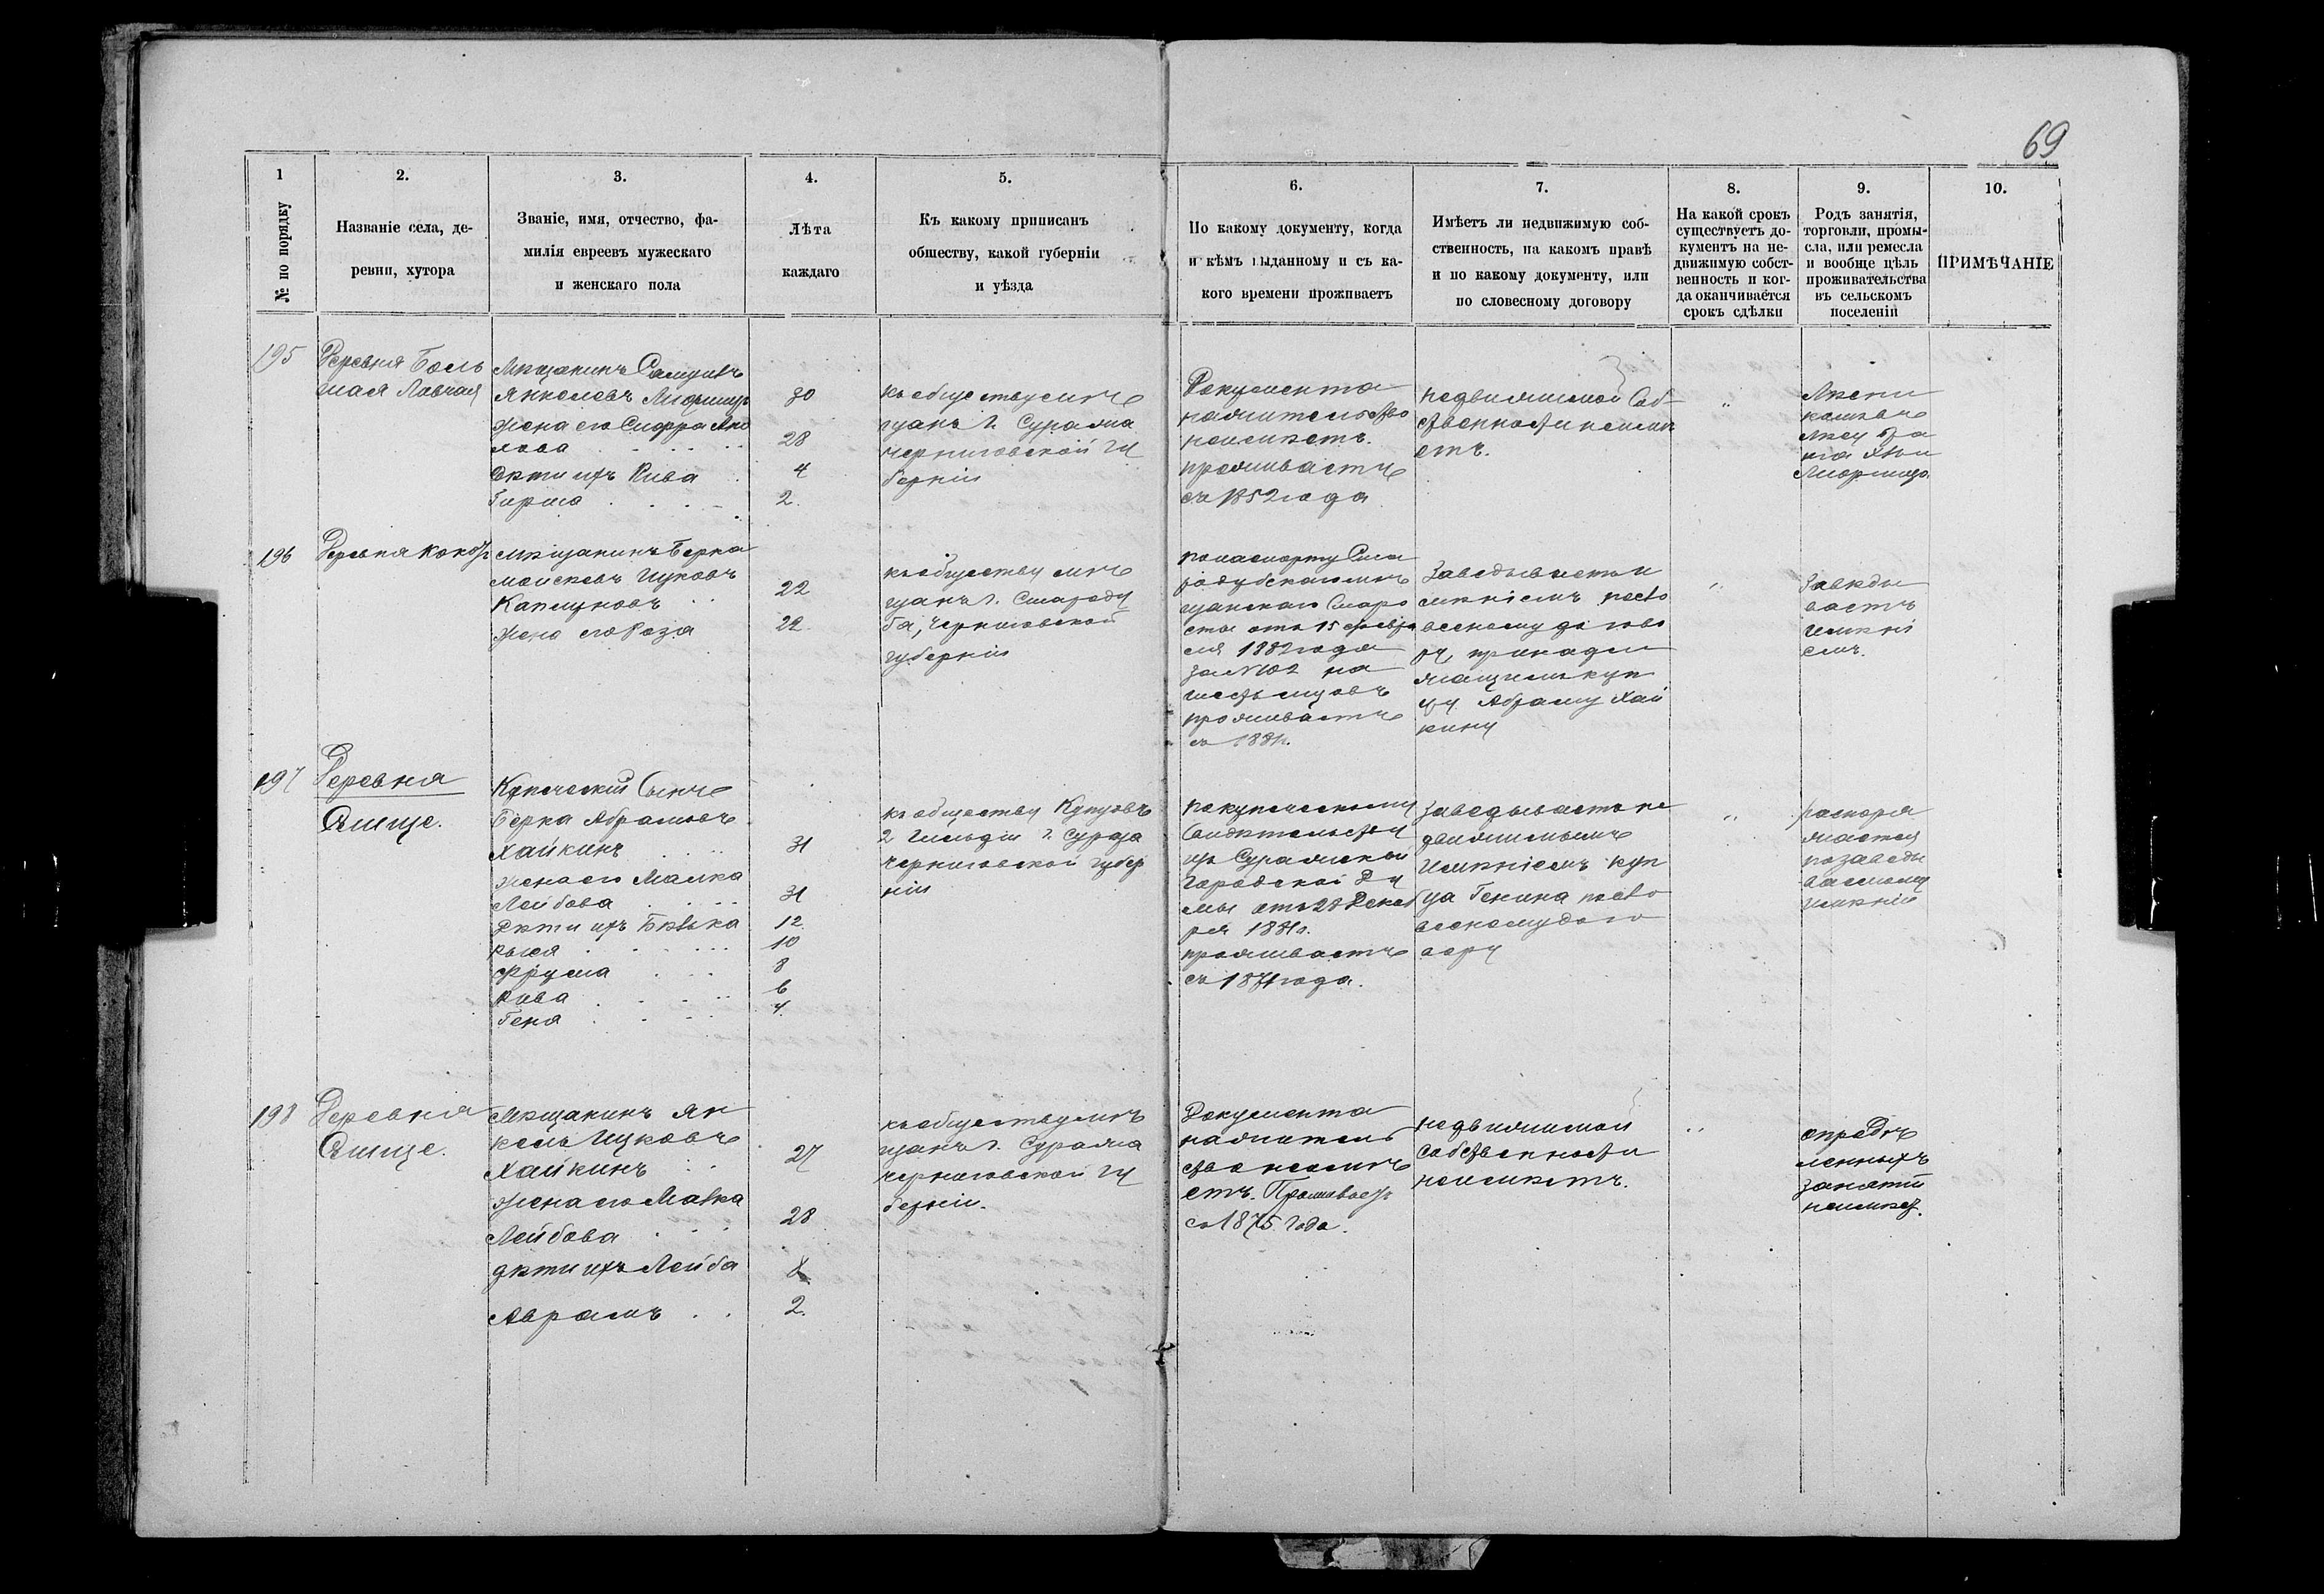 69
1
№ по порядку
2.
Названіе села, де-
ревни, хутора
3.
Званіе, имя, отчество, фа-
милія евреевъ мужескаго
и женскаго пола
4.
Лѣта
каждаго
5.
Къ какому приписанъ
обществу, какой губерніи
и уѣзда
6.
По какому документу, когда
и кѣмъ выданному и съ ка-
кого времени проживаетъ
7.
Имѣетъ ли недвижимую соб-
ственность, на какомъ правѣ
и по какому документу, или
по словесному договору
8.
На какой срокъ
существуетъ до-
кументъ на не-
движимую собст-
венность и ког-
да оканчивается
срокъ сдѣлки
9.
Родъ занятія,
торговли, промы-
сла, или ремесла
и вообще цѣль
проживательства
въ сельскомъ
поселеніи
10.
ПРИМѢЧАНІЕ
195
Деревня Боль
шая Ловчая
Мѣщанинъ
Янкелевъ
жена его
дѣти ихъ Рива
Гирша
30
28
4
2.
къ обществу мѣ
щанъ г. Суража
черниговской гу
берніи
Документа
на жительство
неимѣетъ.
проживаетъ
съ 1852 года
недвижимой Соб
ственности неимѣ
етъ.
196
Деревня
мѣщанинъ Берка
Мовшевъ Ицковъ
жена его Роза
22
22
къ обществу мѣ
щанъ г. Староду
ба, Черниговской
губерніи
по паспорту Ста
родубскаго мѣ
щанскаго Старо
сты отъ 15
1882 года
за № 102 на
шесть мѣсяцовъ
проживаетъ
съ 1881г.
Завѣдываетъ и
мѣніемъ посло
весному догово
ру, принадле
жащимъ куп
цу Абраму Хай
кину
Завѣды
ваетъ
имѣні
емъ.
197
Деревня
Ямище.
Купеческій Сынъ
Берка Абрамовъ
Хайкинъ
жена его Малка
Лейбова
Дѣти ихъ
Рыся
Фрума
Рива
Геня
31
31
12
10
8
6
4.
къ обществу Купцовъ
2 гильдіи г. Суража
Черниговской Губер
ніи
по купеческому
Свидѣтельству
изъ Суражской
Городской Ду
мы отъ 28 Декаб
ря 1881г.
проживаетъ
съ 1871 года.
Завѣдываетъ не
движимымъ
имѣніемъ куп
ца Генина посло
весному дого
вору
распоря
жается
по завѣды
ваемому
имѣнію
198
Деревня
Ямище.
Мѣщанинъ Ян
кель Ицковъ
Хайкинъ
жена его Малка
Лейбова
дѣти ихъ Лейба
Аврамъ
27
28
2.
къ обществу мѣ
щанъ г. Суража
черниговской гу
берніи.
Документа
на житель
ство неимѣ
етъ. Проживаетъ
съ 1875 года.
недвижимой
собственности
неимѣетъ.
опредѣ
ленныхъ
занятій
неимѣетъ.